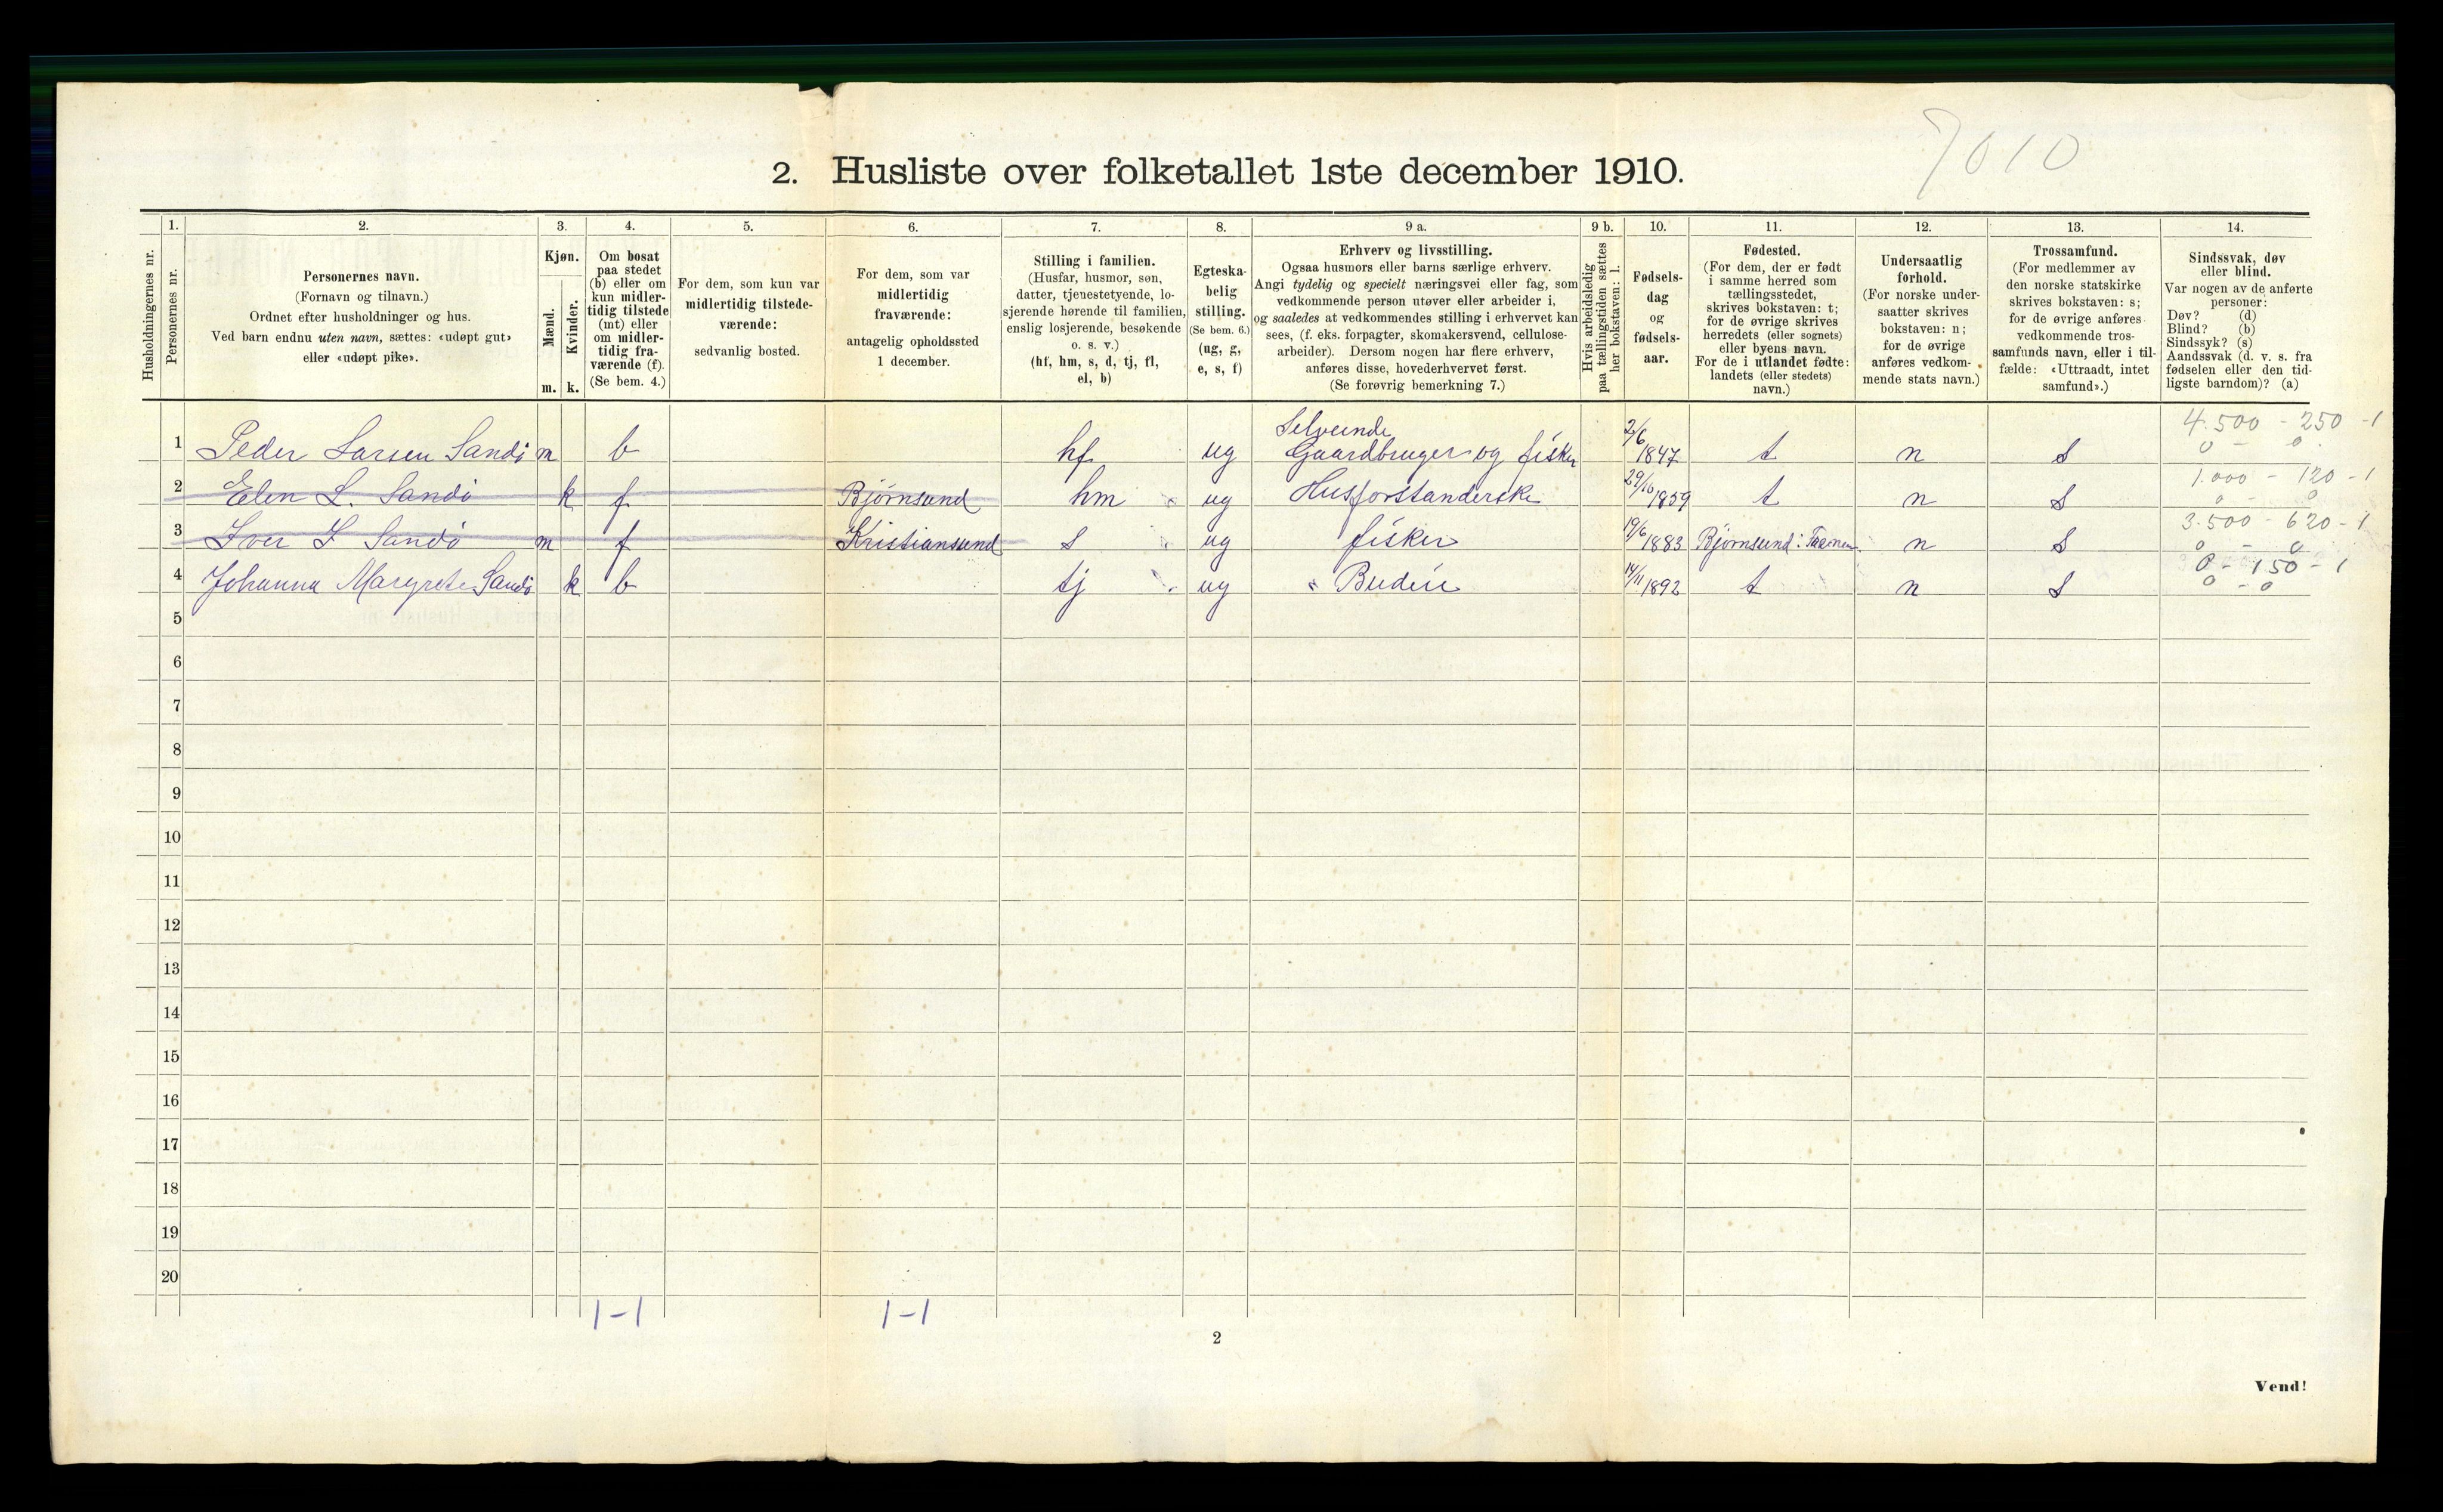 7010
2. Husliste over folketallet 1ste december 1910.
Husholdningernes nr.
1. Personernes nr.
2. Personernes navn.
(Fornavn og tilnavn.)
Ordnet efter husholdninger og hus.
Ved barn endnu uten navn, sættes: «udøpt gut»
eller «udøpt pike».
3. Kjøn.
Mænd. m.
Kvinder. k.
4. Om bosat
paa stedet
(b) eller om
kun midler-
tidig tilstede
(mt) eller
om midler-
tidig fra-
værende (f).
(Se bem. 4.)
5. For dem, som kun var
midlertidig tilstede-
værende:
sedvanlig bosted.
6. For dem, som var
midlertidig
fraværende:
antagelig opholdssted
1 december.
7. Stilling i familien.
(Husfar, husmor, søn,
datter, tjenestetyende, lo-
sjerende hørende til familien,
enslig losjerende, besøkende
o. s. v.)
(hf, hm, s, d, tj, fl,
el, b)
8. Egteska-
belig
stilling.
(Se bem. 6.)
(ug, g,
e, s, f)
9 a. Erhverv og livsstilling.
Ogsaa husmors eller barns særlige erhverv.
Angi tydelig og specielt næringsvei eller fag, som
vedkommende person utøver eller arbeider i,
og saaledes at vedkommendes stilling i erhvervet kan
sees, (f. eks. forpagter, skomakersvend, cellulose-
arbeider). Dersom nogen har flere erhverv,
anføres disse, hovederhvervet først.
(Se forøvrig bemerkning 7.)
9 b. Hvis arbeidsledig
paa tællingstiden sættes
her bokstaven: l.
10. Fødsels-
dag
og
fødsels-
aar.
11. Fødested.
(For dem, der er født
i samme herred som
tællingsstedet,
skrives bokstaven: t;
for de øvrige skrives
herredets (eller sognets)
eller byens navn.
For de i utlandet fødte:
landets (eller stedets)
navn.)
12. Undersaatlig
forhold.
(For norske under-
saatter skrives
bokstaven: n;
for de øvrige
anføres vedkom-
mende stats navn.)
13. Trossamfund.
(For medlemmer av
den norske statskirke
skrives bokstaven: s;
for de øvrige anføres
vedkommende tros-
samfunds navn, eller i til-
fælde: «Uttraadt, intet
samfund».)
14. Sindssvak, døv
eller blind.
Var nogen av de anførte
personer:
Døv? (d)
Blind? (b)
Sindssyk? (s)
Aandssvak (d. v. s. fra
fødselen eller den tid-
ligste barndom)? (a)
Selveiende 4.500 - 250 - 1
1 Peder Larsen Sandö m b hf ug Gaardbruger og fisker 2/6 1847 t n s 0 - 0
1.000 - 120 - 1
2 Elen L. Sandö k f Bjørnsund hm ug Husforstanderske 29/10 1859 t n s 0 - 0
3.500 - 620 - 1
3 Iver L Sandö m f Kristiansund s ug fisker 19/6 1883 Bjørnsund n s 0 - 0
0 - 150 - 1
4 Johanna Margrete Sandö k b tj ug Budeie 14/11 1892 t n s 0 - 0
5
6
7
8
9
10
11
12
13
14
15
16
17
18
19
20
1-1 1-1
2
Vend!